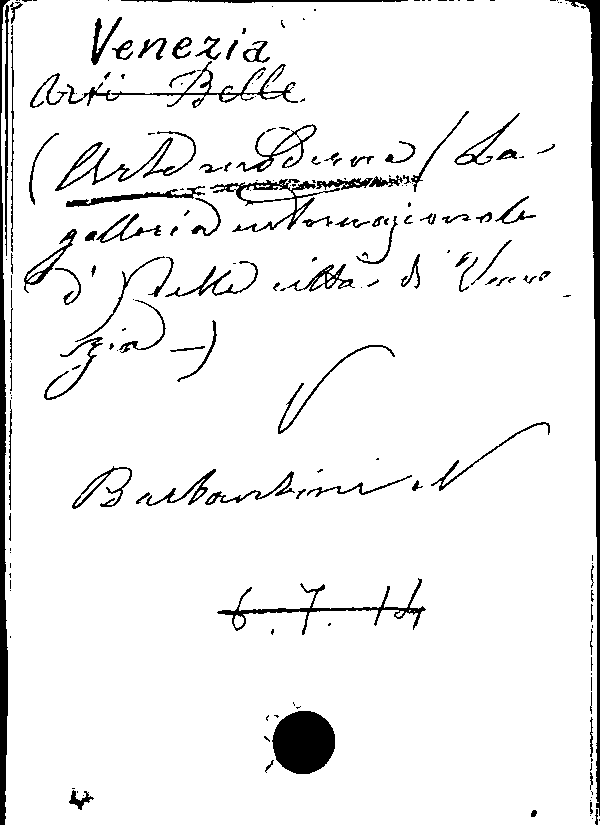 Venezia
Arti Belle
(Arte moderna / La
galleria internazionale
d' della città di Vene-
zia —)
V
Barbantini. N
6.7.14